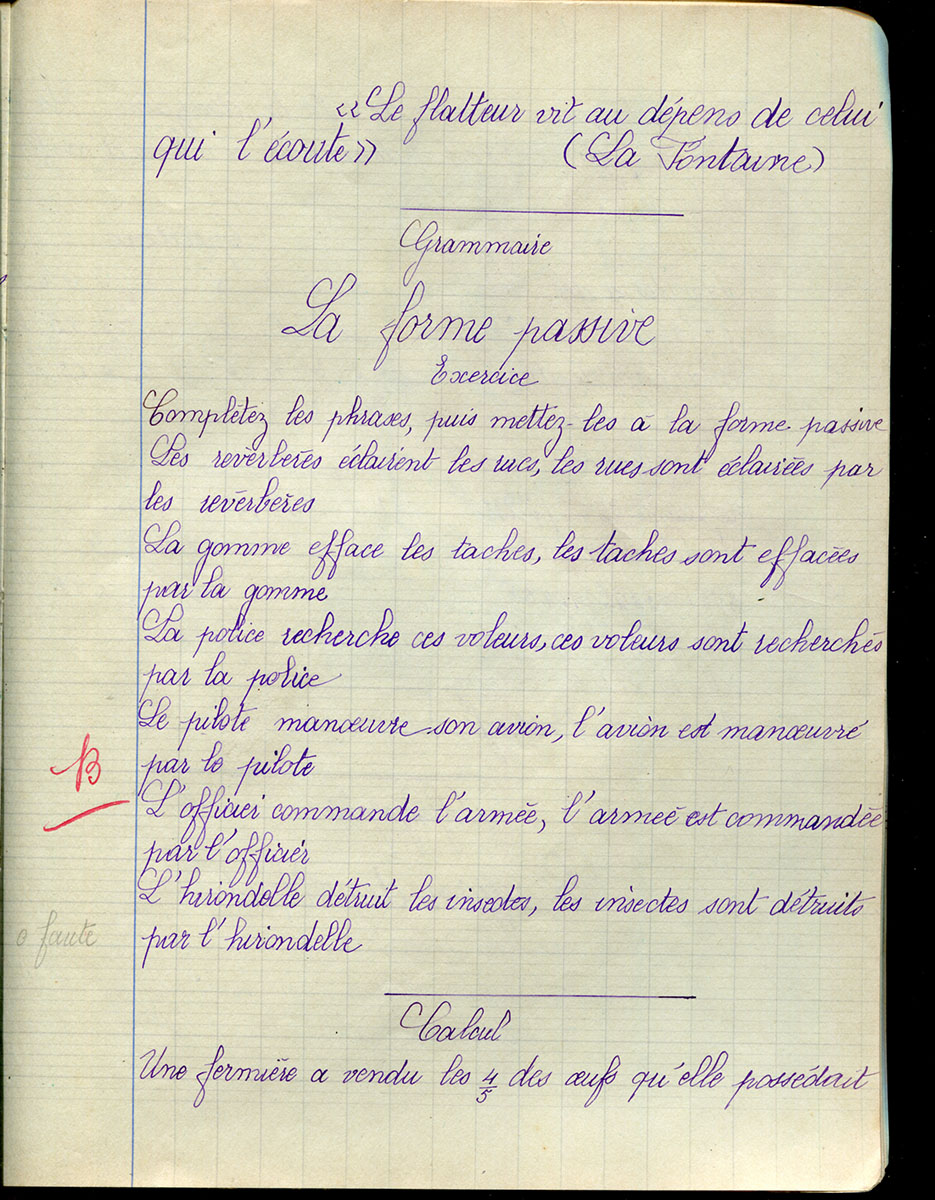 « Le flatteur vit au dépens de celui
qui l'écoute »        (La Fontaine)
Grammaire
La forme passive
Exercice
Complétez les phrases, puis mettez-les à la forme passive
Les réverbères éclairent les rues, les rues sont éclairées par
les réverbères
La gomme efface les taches, les taches sont effacées
par la gomme
La police recherche ces voleurs, ces voleurs sont recherchés
par la police
Le pilote manœuvre son avion, l'avion est manœuvré
par le pilote
B
L'officier commande l'armée, l'armeé est commandée
par l'officier
L'hirondelle détruit les insectes, les insectes sont détruits
0 faute
par l'hirondelle
Calcul
Une fermière a vendu les 4/5 des œufs qu'elle possédait